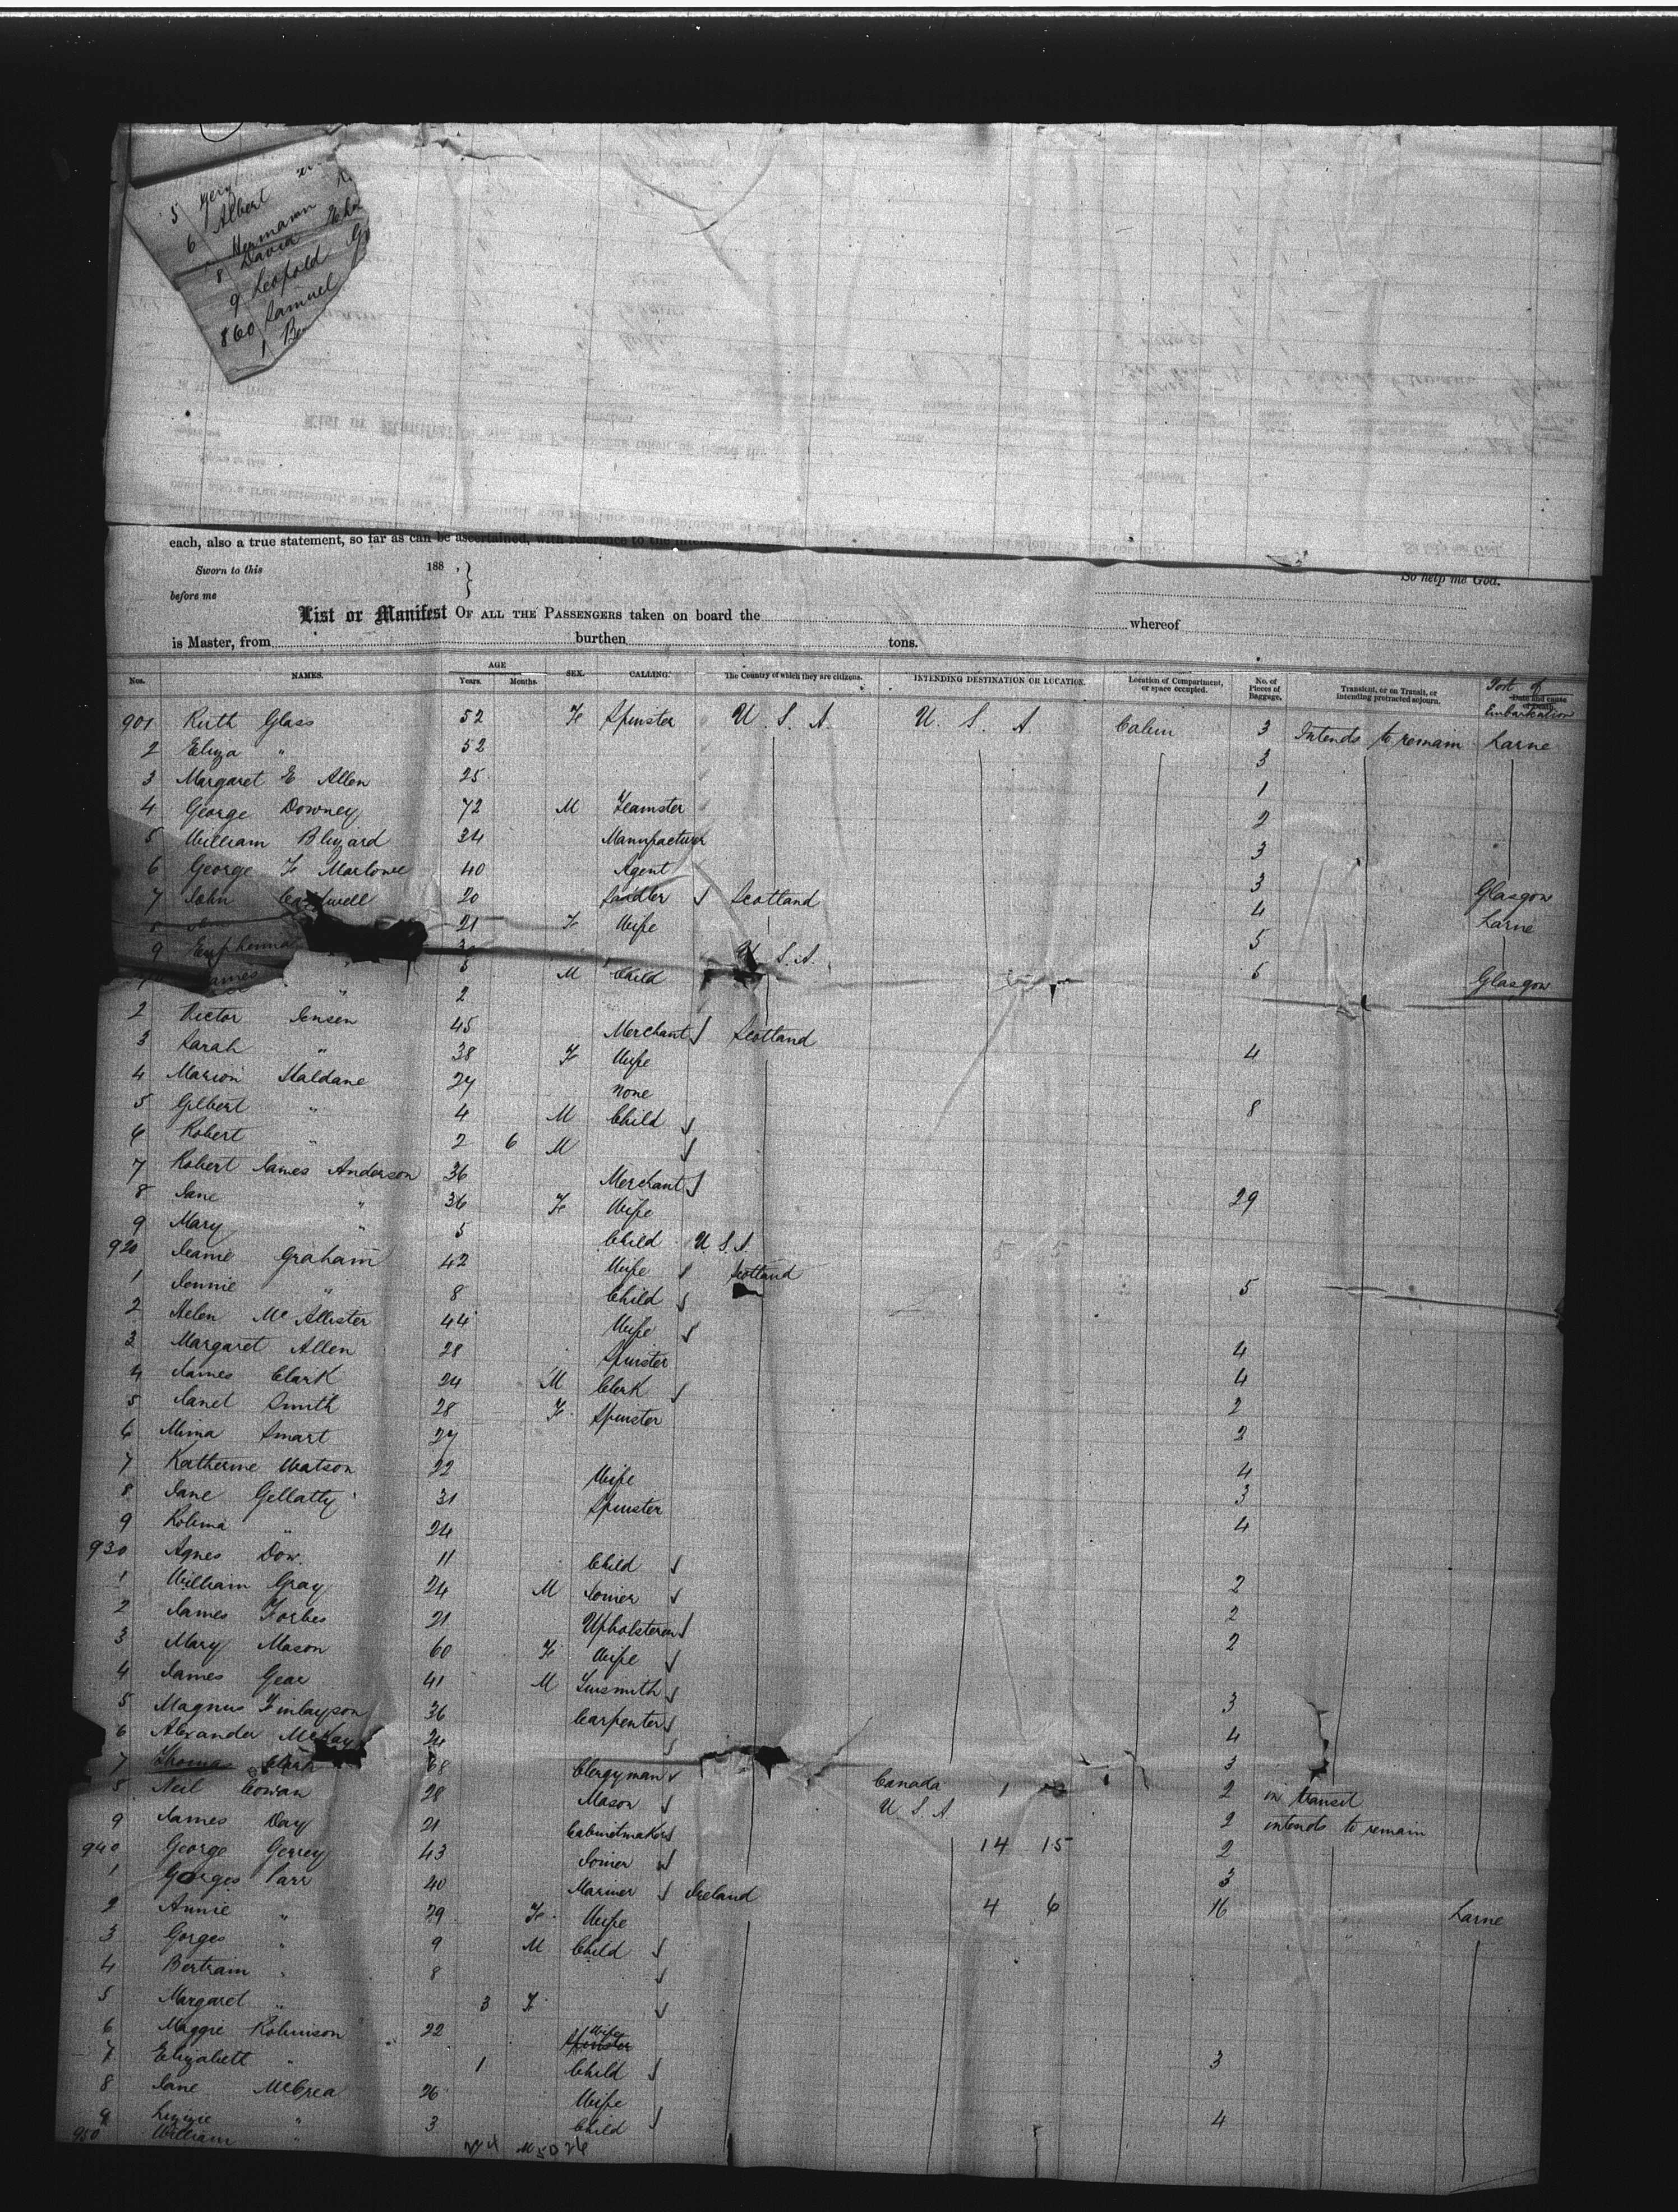 5
6 Albert
7 Hermann
8 David
9 Leopold
860 Samuel
1
each, also a true statement, so far as can be ascertained, with reference to the
Sworn to this 188 , }
before me
So help me God.
List or Manifest OF ALL THE PASSENGERS taken on board the whereof
is Master, from burthen tons.
Nos. NAMES. AGE Years. Months. SEX. CALLING. The Country of which they are citizens. INTENDING DESTINATION OR LOCATION. Location of Compartment, or space occupied. No. of Pieces of Baggage. Transient, or on Transit, or intending protracted sojourn. Port of Embarkation
901 Ruth Glass 52 F Spinster U. S. A. U. S. A. Cabin 3 Intends to remain Larne
2 Eliza " 52 3
3 Margaret E Allen 25 1
4 George Downey 72 M Teamster 2
5 William Blizard 34 Manufacturer 3
6 George F Marlowe 40 Agent 3 Glasgow
7 John 20 Saddler Scotland 4 Larne
21 F Wife 5
9 Euphemia U. S. A.
James " 5 M Child 6 Glasgow
" 2
2 Victor Jensen 45 Merchant Scotland
3 Sarah " 38 F Wife 4
4 Marion Haldane 27 None
5 Gilbert " 4 M Child 8
6 Robert " 2 6 M
7 Robert James Anderson 36 Merchant
8 Jane " 36 F Wife 29
9 Mary " 5 Child U. S. A.
920 Jeanie Graham 42 Wife Scotland
1 Jennie " 8 Child 5
2 Helen McAllister 44 Wife
3 Margaret Allen 28 Spinster 4
4 James Clark 24 M Clerk 4
5 Janet Smith 28 F Spinster 2
6 Mima Smart 27 2
7 Katherine Watson 22 Wife 4
8 Jane Gellatly 31 Spinster 3
9 Robina " 24 4
930 Agnes Dow. 11 Child
1 William Gray 24 M Joiner 2
2 James Forbes 21 Upholsterer 2
3 Mary Mason 60 F Wife 2
4 James Gear 41 M Tinsmith
5 Magnus Finlayson 36 Carpenter 3
6 Alexander McKay 24 4
7 Thomas Clark 68 Clergyman Canada 1 3
8 Neil Cowan 28 Mason U. S. A 2 in transit
9 James Day 21 Cabinetmaker 2 intends to remain
940 George Gerrey 43 Joiner 14 15 2
1 Gorges Parr 40 Mariner Ireland 3
2 Annie " 29 F Wife 4 6 16 Larne
3 Gorges " 9 M Child
4 Bertram " 8
5 Margaret " 3 F
6 Maggie Robinson 22 Wife Spinster
7 Elizabeth " 1 Child 3
8 Jane McCrea 26 Wife
9 Lizzie " 3 Child 4
950 William "